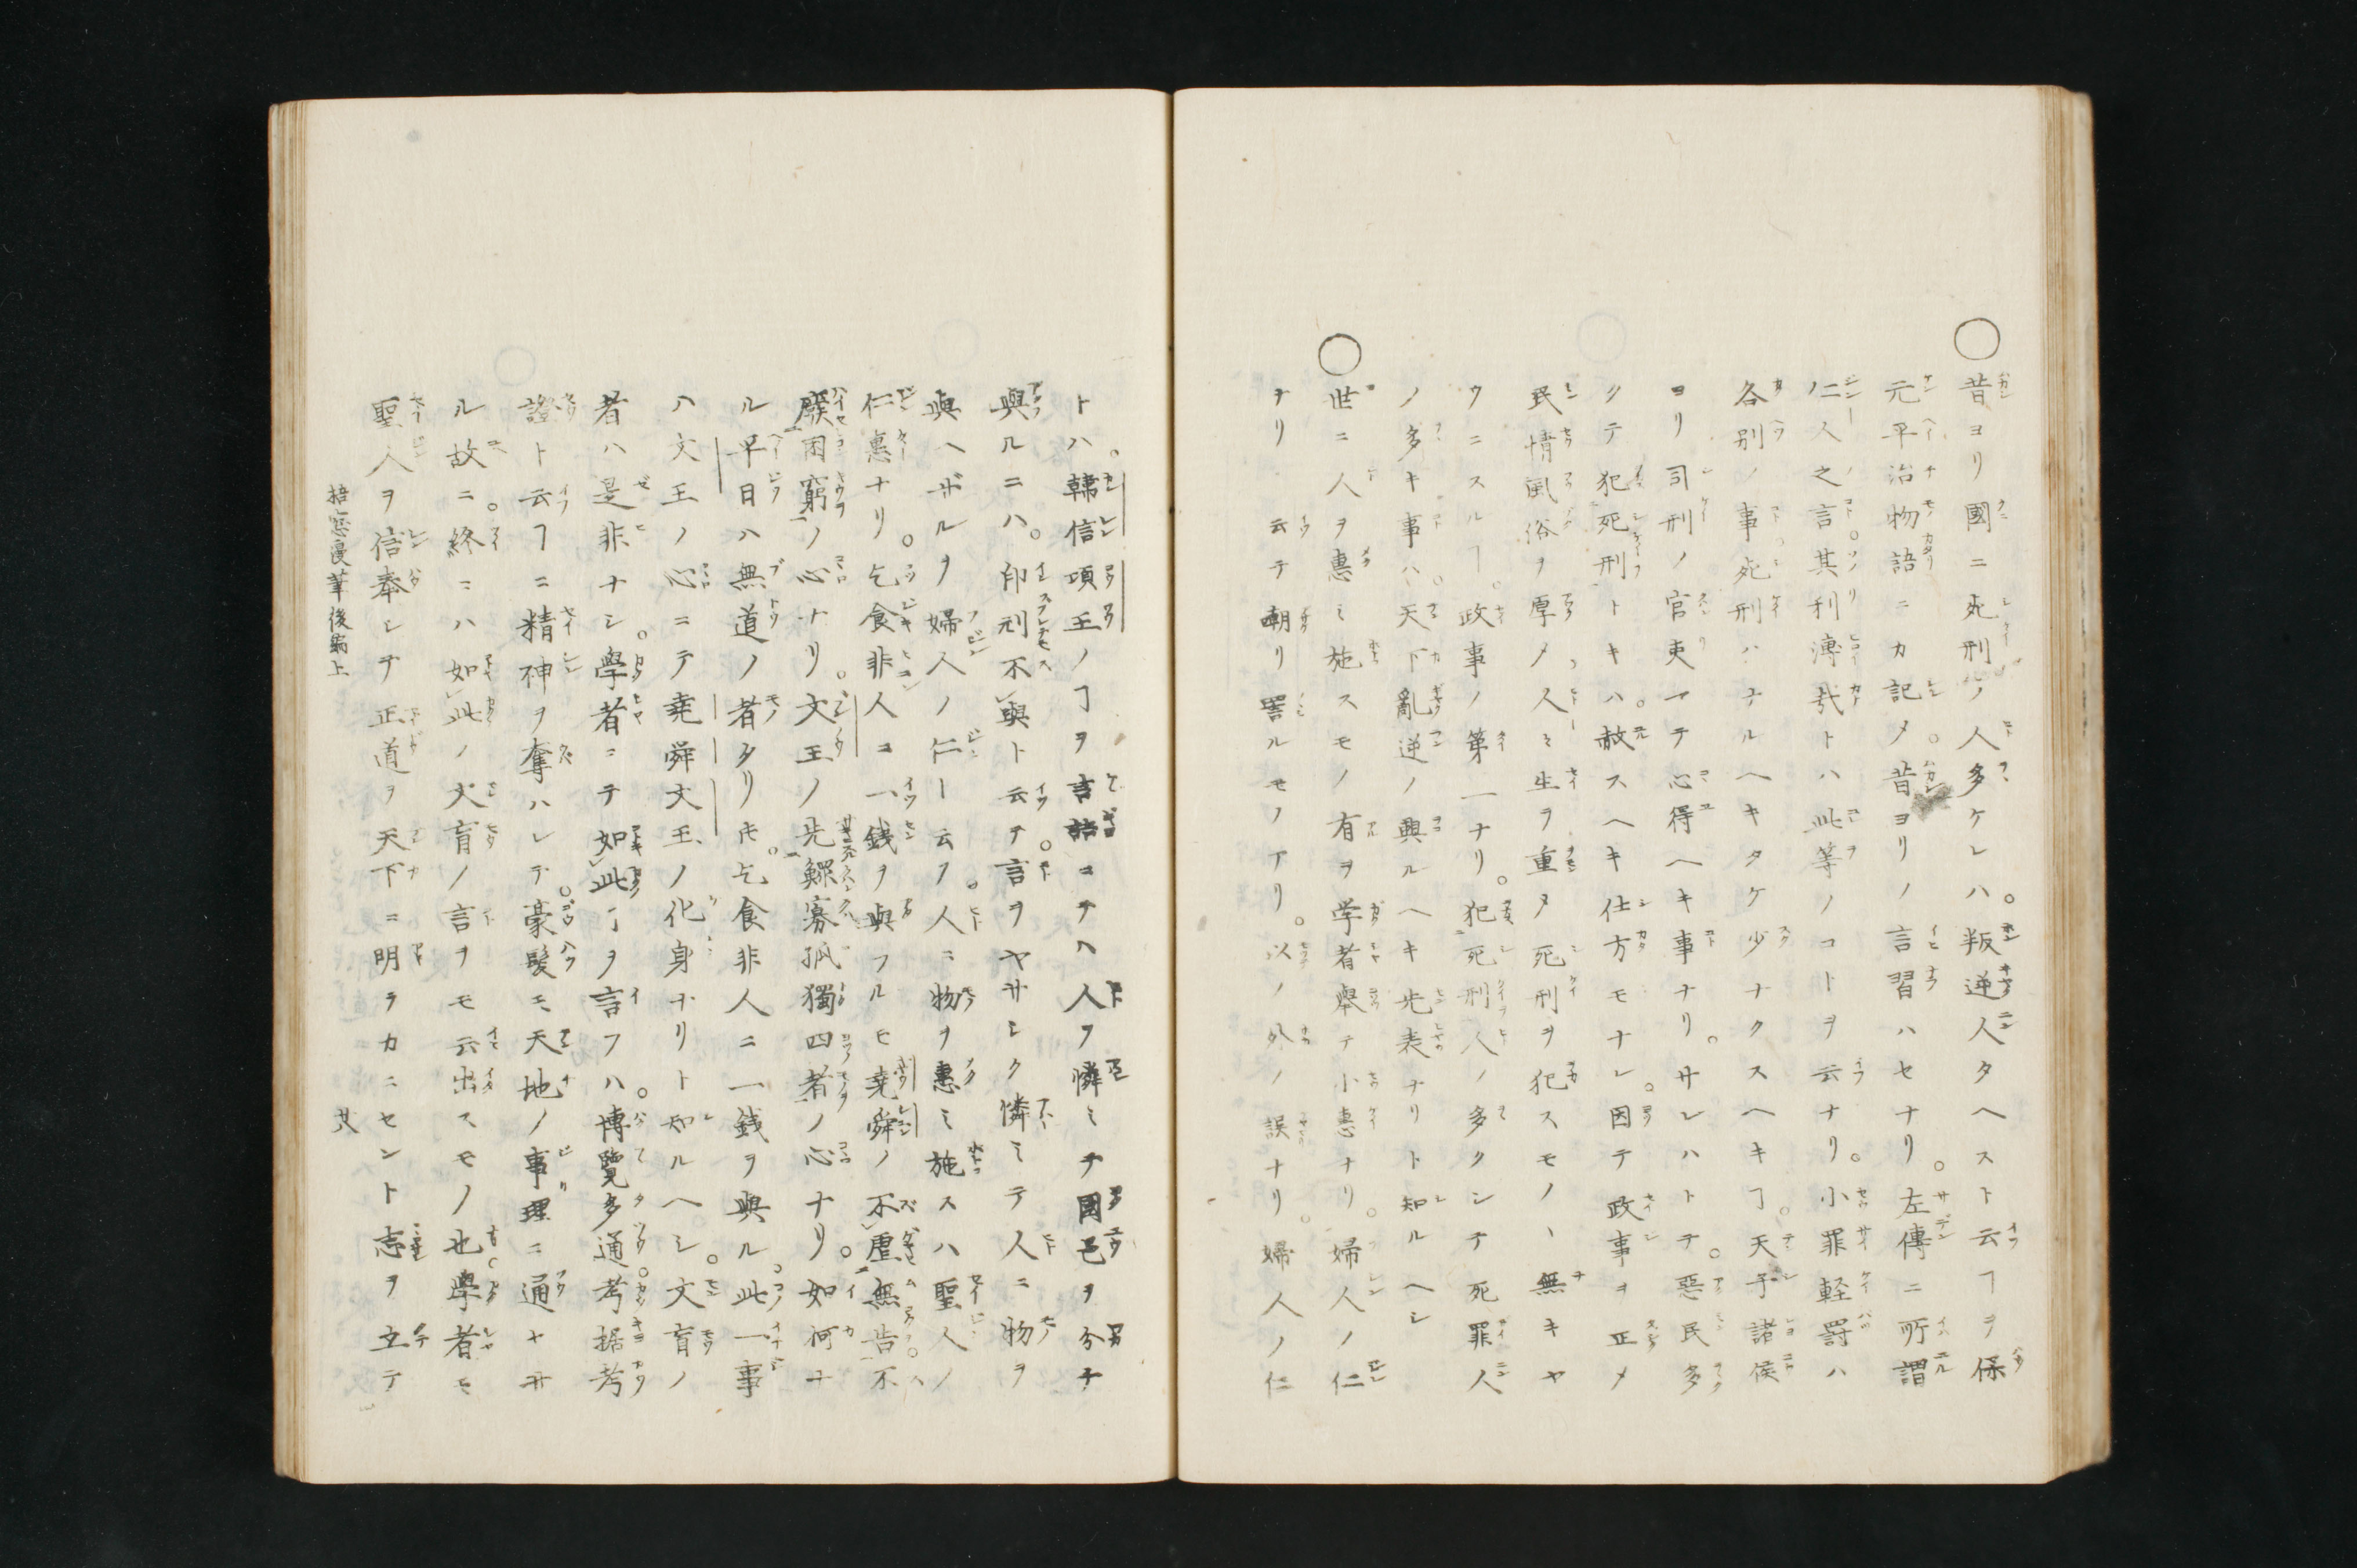 ○昔ヨリ國ニ死刑ノ人多ケレハ。叛逆人タヘスト云フヿヲ保
元平治物語ニカ記メ。昔ヨリノ言習ハセナリ。左傳ニ所謂
仁人之言。其利溥哉トハ此等ノコトヲ云ナリ。小罪軽罰ハ
各別ノ事死刑ハナルヘキタケ少ナクスヘキヿ。天子諸侯
ヨリ司刑ノ官吏マテ心得ヘキ事ナリ。サレハトテ。惡民多
クテ犯死刑トキハ。赦スヘキ仕方モナシ。因テ政事ヲ正メ
民情風俗ヲ厚メ人々生ヲ重メ死刑ヲ犯スモノヽ無キヤ
ウニスルヿ。政事ノ第一ナリ。犯死刑人ノ多クシテ死罪人
ノ多キ事ハ。天下亂逆ノ興ルヘキ先表ナリト知ルヘシ
○世ニ人ヲ惠ミ施スモノ有ヲ学者舉テ小惠ナリ。婦人ノ仁
ナリ云テ嘲リ詈ルモノアリ。以ノ外ノ誤ナリ。婦人ノ仁
トハ。韓信項王ノヿヲ言語ニテハ人ヲ憐ミテ國邑ヲ分チ
與ルニハ。印刓不與ト云テ。言ヲヤサシク憐ミテ人ニ物ヲ
與ヘザルヲ婦人ノ仁ト云フ。人ニ物ヲ惠ミ施スハ聖人ノ
仁惠ナリ。乞食非人ニ一銭ヲ與フルモ堯舜ノ不虐無告不
廢困窮ノ心ナリ。文王ノ先鰥寡孤獨四者ノ心ナリ。如何ナ
ル早日ハ無道ノ者タリ𪜈。乞食非人ニ一銭ヲ與ル。此一事
ハ文王ノ心ニテ堯舜文王ノ化身ナリト知ルヘシ。文盲ノ
者ハ是非ナシ。學者ニテ如此ヿヲ言フハ。博覽多通。考据考
證ト云フヿニ精神ヲ奪ハレテ。豪髪モ天地ノ事理ニ通ヤサ
ル故ニ。終ニハ如此ノ文盲ノ言ヲモ云出スモノ也。學者モ
聖人ヲ信奉シテ正道ヲ天下ニ明ラカニセント志ヲ立テ
梧窓漫筆後編上　廿八